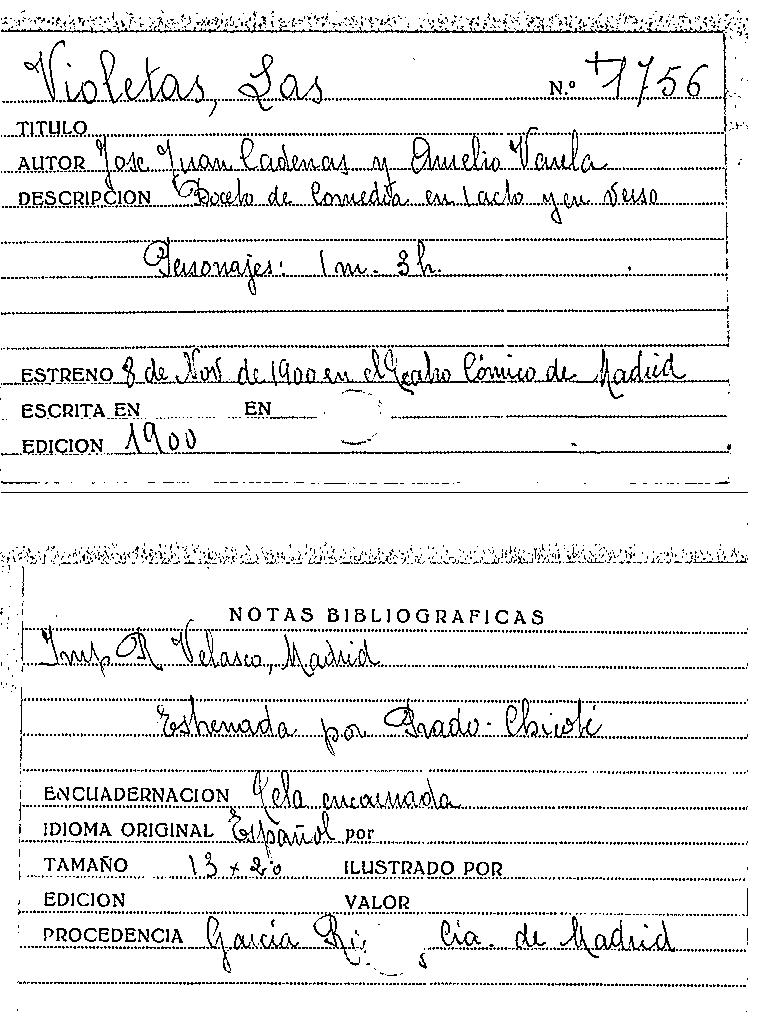 Violetas, Las N.º +1756
TITULO
AUTOR Jose Juan Cadenas y Aurelio Varela
DESCRIPCION Boceto de Comedia en 1 acto y en verso
Personajes: 1 m. 3 h.
ESTRENO 8 de Nov de 1900 en el Teatro Cómico de Madrid
ESCRITA EN EN
EDICION 1900
NOTAS BIBLIOGRAFICAS
Imp. R Velasco, Madrid
Estrenada por Prado-Chicote
ENCUADERNACION Tela encarnada
IDIOMA ORIGINAL Español por
TAMAÑO 13 x 20 ILUSTRADO POR
EDICION VALOR
PROCEDENCIA García , Cia. de Madrid